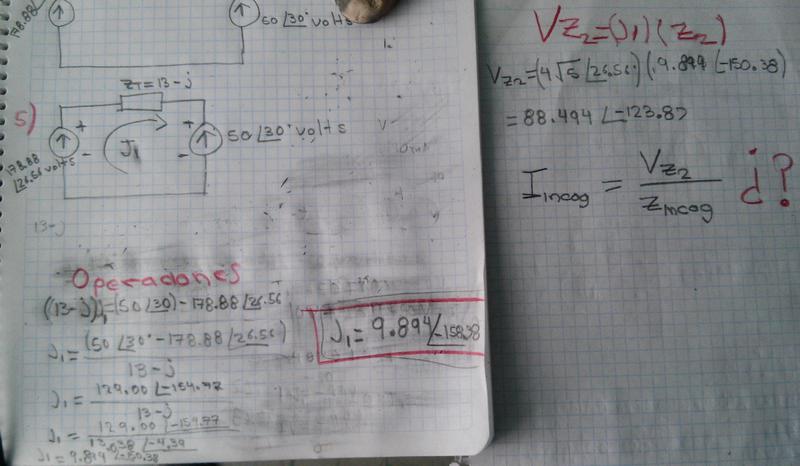 178.88
50∠30° volts
5)
ZT=13-j
+
-
J1
+
-
50∠30° volts
178.88
∠26.56 volts
13-j
Operaciones
(13-j)J1=(50∠30)-178.88∠26.56
J1=(50∠30°-178.88∠26.56)
13-j
J1=129.00∠-154.77
13-j
J1=129.00∠-154.77
13.038∠-4.39
J1=9.894∠-150.38
J1=9.894∠-158.38
VZ2=(J1)(Z2)
VZ2=(4√5∠26.56)(9.894∠-150.38)
=88.494∠-123.82
Iincog=VZ2
Zincog
¿?